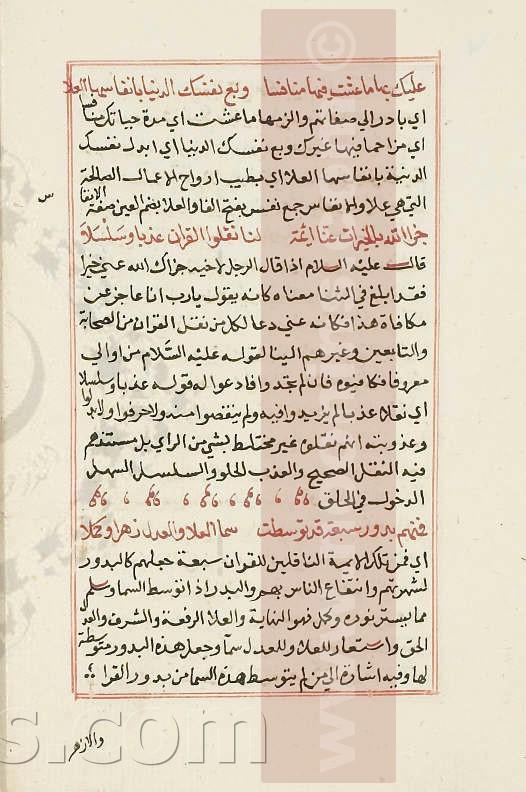 عليك بها ما عشت فيها منافسا وبع نفسك الدنيا بانفاسها العلا
اي بادر الي صفاتهم والزمها ما عشت اي مدة حياتك منافسا
اي مزاحما فيها غيرك وبع نفسك الدنيا اي ابدل نفسك
الدنية بانفاسها العلا اي بطيب ارواح الاعمال الصالحة
التي هي علا والانفاس جع نفس بفتح الفا والعلا بضم العين صفة
جزا الله بالخيرات عنا ايمة لنا نقلوا القران عذبا وسلسلا
قال عليه السلام اذا قال الرجل لاخيه جزاك الله عني خيرا
فقد ابلغ في الثنا معناه كانه يقول يارب انا عاجز عن
مكافاة هذا فكافه عني دعا لكل من نقل القران من الصحابة
والتابعين وغيرهم الينا لقوله عليه السلام من اوالي
معروفا فكافيوه فان لم تجدوا فادعوا له قوله عذبا وسلسلا
اي نقلا عذبا لم يزيدوا فيه ولم ينقصوا منه ولا حرفوا ولا بدلوا
وعذوبته انهم نقلوه غير مختلط بشي من الراي بل مستندهم
فيه النقل الصحيح والعذب الحلو والسلسل السهل
الدخول في الحلق
فمنهم بدور سبعة قد توسطت سما العلا والعدل زهرا وكملا
اي فمن تلك الايمة الناقلين للقران سبعة جعلهم كالبدور
لشهرتهم وانتفاع الناس بهم والبدر اذا توسط السما وسلم
مما يستر نوره وكمل فهو النهاية والعلا الرفعة والشرف والعدل
الحق واستعار للعلا وللعدل سما وجعل هذه البدور متوسطة
لها وفيه اشارة الي من لم يتوسط هذه السما من بدور القرا
والازهر
s.com